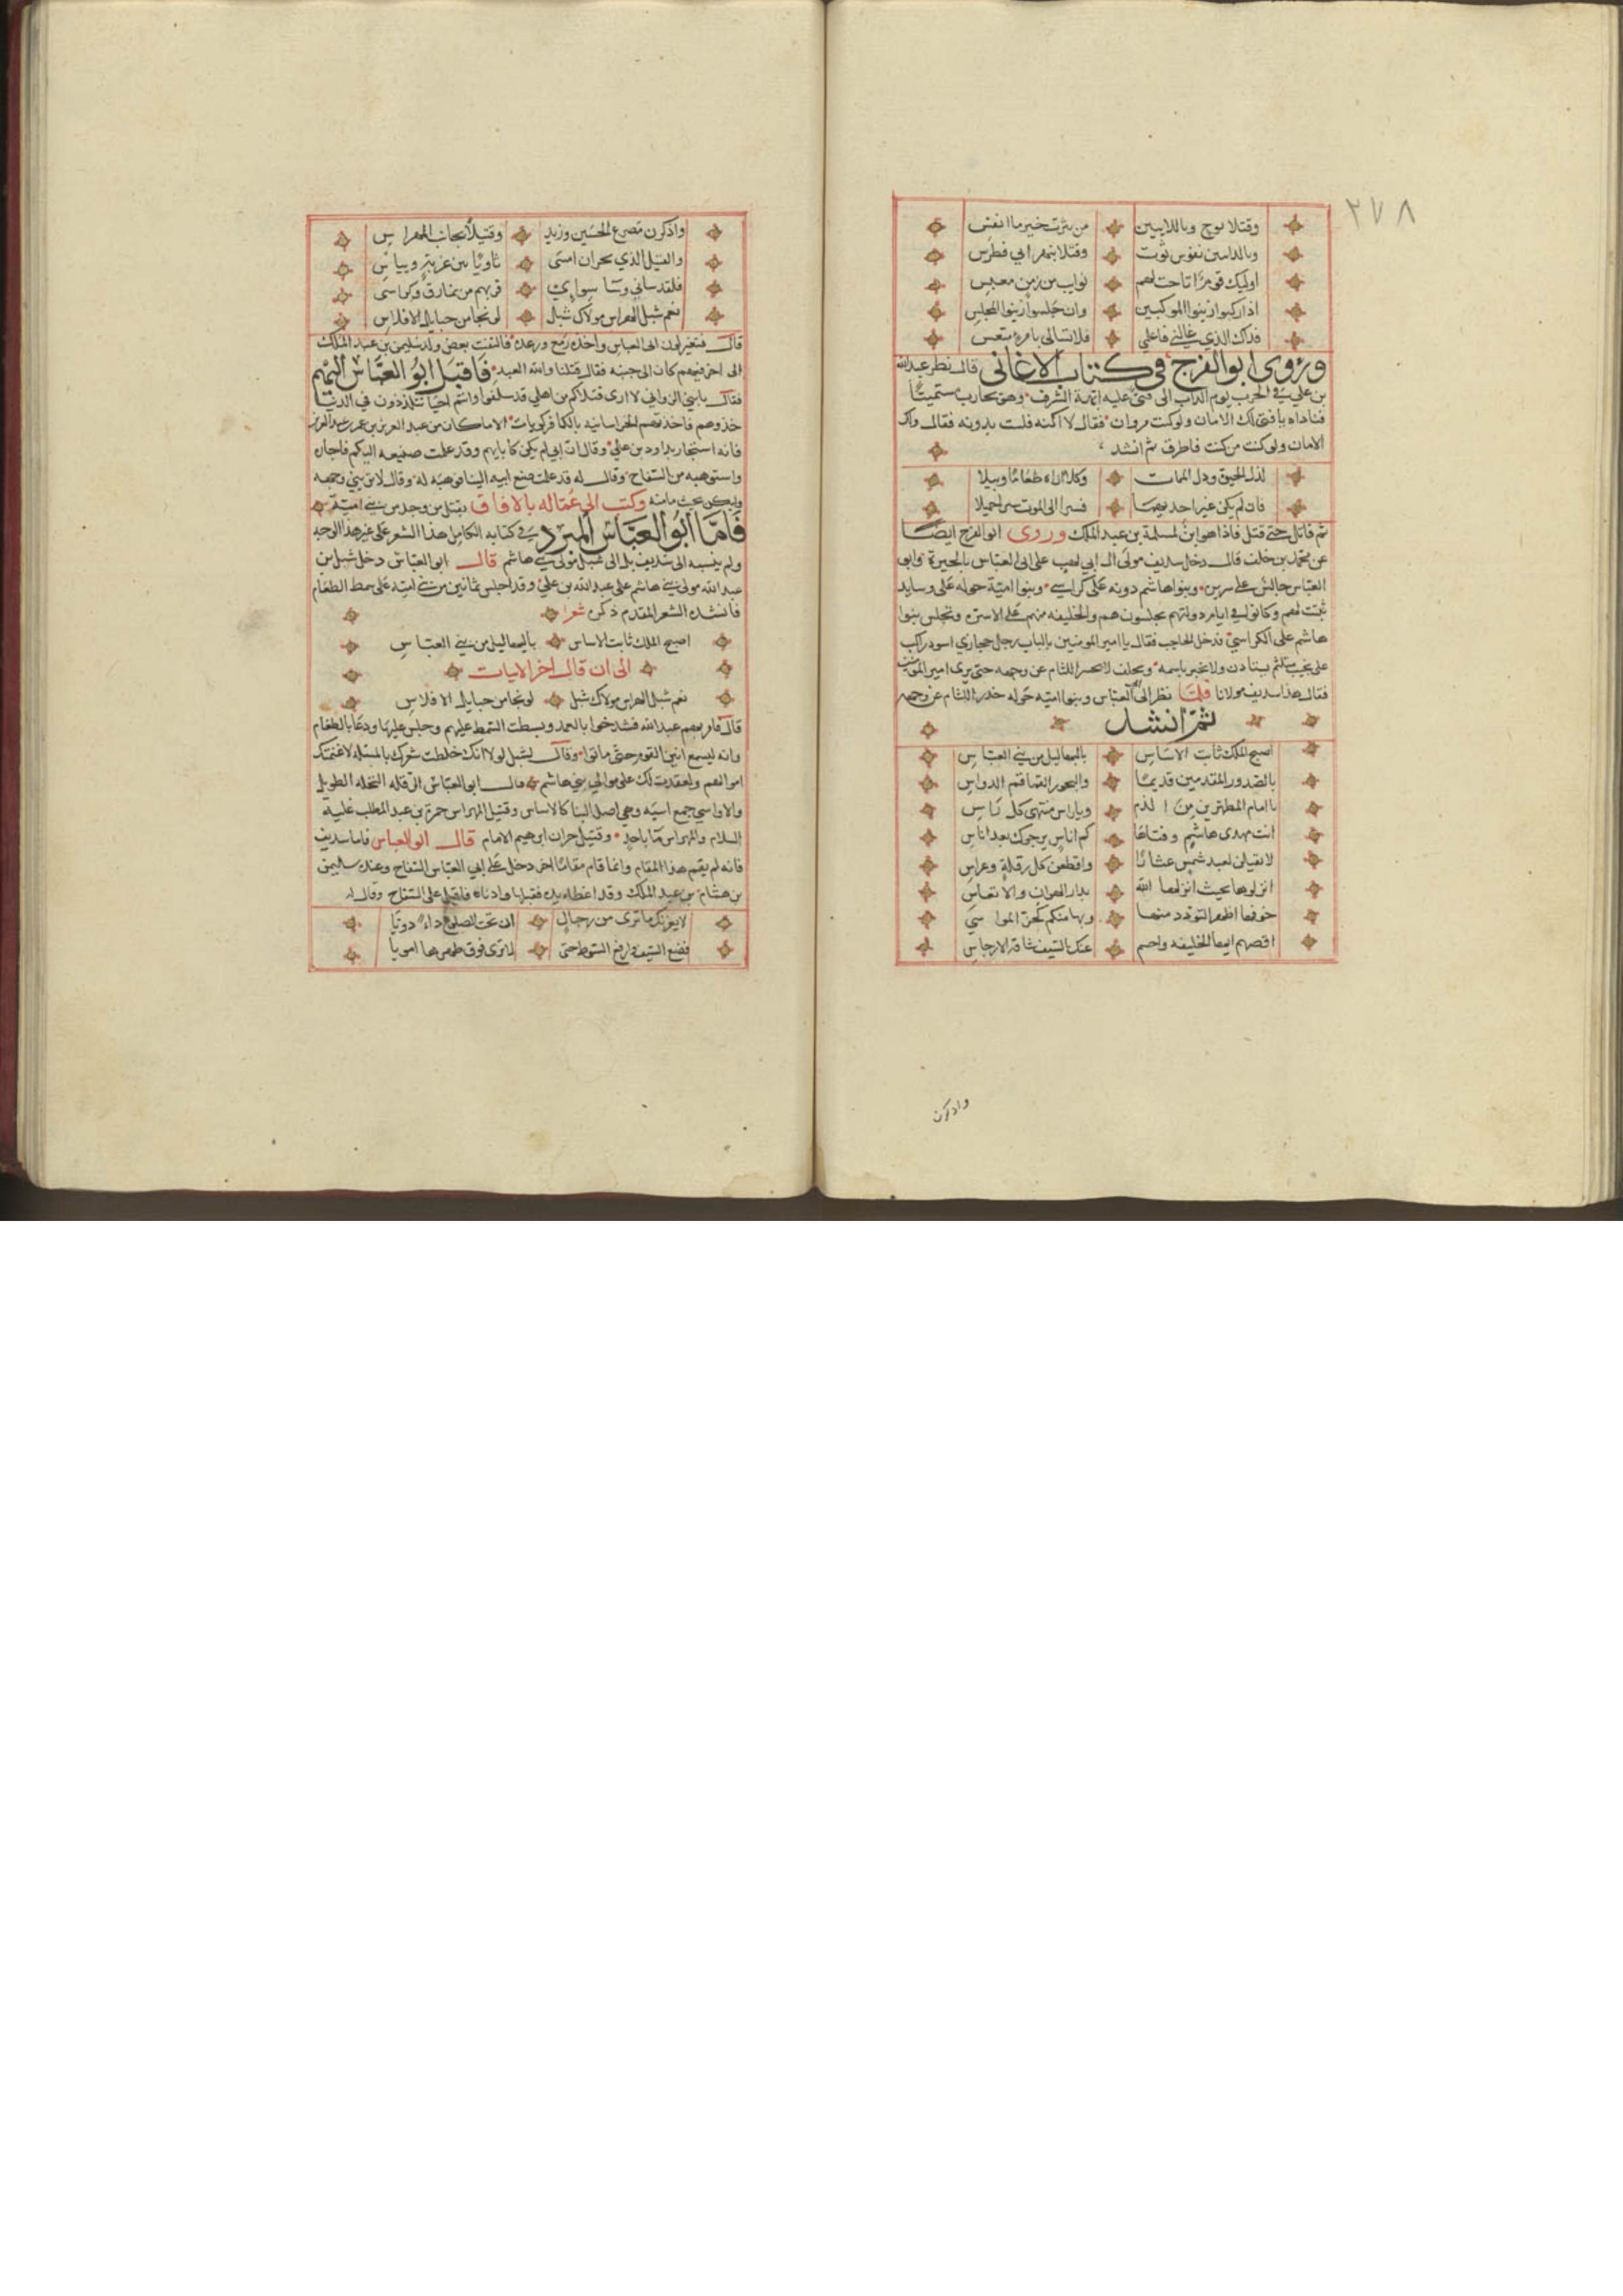 ٢٧٨
وقتلا بوج وباللابتين من يثرب خير ما انفس
وبالدابيين نفوس ثوت وقتلا بنهر ابي فطرس
اوليك قوم اناخت بهم نوايب من زمن معبس
اذا ركبوا زينوا الموكبين وان جلسوا زينوا المجلس
فلا تسالى بامرء متعس
وروى ابو الفرج في كتاب الاغانى قال نظر عبدالله
بن علي في الحرب الى فتى عليه ابهة الشرف وهو يحارب مستميتًا
فناداه يا فتى لك الامان ولو كنت مروان فقال لا اكنه فلست بدونه فقال ولك
الامان ولو كنت من كنت فاطرق ثم انشد
لذل الحيوة وذل الممات وكلا اراه طعامًا وبيلا
فان لم يكن غير احديهما فسيرا الى الموت سيرا جميلا
ثم قاتل حتى قتل فاذا هو ابن لمسلمة بن عبد الملك وروى ابو الفرج ايضًا
عن محمد بن خلف قال دخل سديف مولى ال ابي لهب على ابي العباس بالحيرة وابو
العباس جالس على سريره وبنو هاشم دونه على كراسي وبنوا امية حوله على وسايد
ثنيت لهم وكانوا في ايام دولتهم يجلسون هم والخليفه منهم على الاسرة ويجلس بنوا
هاشم على الكراسي فدخل الحاجب فقال يا امير المومنين بالباب رجل حجازي اسود راكب
على نجيب متلثم يستاذن ولا يخبر باسمه ويحلف لا يحسر اللثام عن وجهه حتى يرى امير المومنين
فقال هذا سديف مولانا فلما نظر الى ابي العباس وبنوا اميه حوله حدر اللثام عن وجهه
ثم انشد
اصبح الملك ثابت الاساس بالبهاليل من بني العباس
بالصدور المقدمين قديمًا والبحور القماقم الدواس
يا امام المطهرين من الذم ويا راس منتهى كل راس
انت مهدي هاشم وفتاها كم اناس يرجوك بعد اناس
لا تقيلن لعبد شمس عثارًا واقطعن كل رقلة وغراس
انزلوها بحيث انزلها الله بدار الهوان والاتعاس
خوفها اظهر التودد منها وبها منكم كحز المواسي
اقصهم ايها الخليفه واحسم عنك بالسيف شافة الارجاس
واذكرن
واذكرن مصرع الحسين وزيد وقتيلًا بجانب المهراس
والقتيل الذي بحران امسى ثاويًا بين غربة وتناس
فلقد ساني وسا سوايي قربهم من نمارق وكراسي
نعم شبل الهراس مولاك شبل لو نجا من حبايل الافلاس
قال فتغير لون ابي العباس واخذه زمع ورعده فالتفت بعض ولد سليمن بن عبد الملك
الى اخر فيهم كان الى جنبه فقال قتلنا والله العبد فاقبل ابو العباس اليهم
فقال يا بني الزواني لا ارى قتلاكم من اهلي قد سلفوا وانتم احيا تتلذذون في الدنيا
خذوهم فاخذتهم الخراسانيه بالكافركوبات الا ما كان من عبد العزيز بن عمر بن عبد العزيز
فانه استجار بداود بن علي وقال ان ابي لم يكن كابايهم وقد علمت صنيعه اليكم فاجاره
واستوهبه من السفاح وقال له قد علمت صنيع ابيه الينا فوهبه له وقال لا تريني وجهه
وليكن بحيث نامنه وكتب الى عماله بالافاق بقتل من وجد من بني امية
فاما ابو العباس المبرد في كتابه الكامل هذا الشعر على غير هذا الوجه
ولم ينسبه الى سديف بل الى شبل مولى بني هاشم قال ابو العباس دخل شبل بن
عبد الله مولى بني هاشم على عبد الله بن علي وقد اجلس ثمانين من بني اميه على سمط الطعام
فانشده الشعر المقدم ذكره شعرا
اصبح الملك ثابت الاساس بالبهاليل من بني العباس
الى ان قال اخر الابيات
نعم شبل الهراس مولاك شبل لو نجا من حبايل الافلاس
قال فامر بهم عبد الله فشدخوا بالعمد وبسطت السمط عليهم وجلس عليها ودعا بالطعام
وانه ليسمع انين القوم حتى ماتوا وقال لشبل لولا انك خلطت شعرك بالمسئله لاغنمتك
اموالهم ولعقدت لك على موالي بني هاشم قال ابو العباس الرقله النخله الطويله
والاواسي جمع اسيه وهي اصل البنا كالاساس وقتيل المهراس حمزة بن عبد المطلب عليه
السلام والمهراس ما باحد وقتيل حران ابرهيم الامام قال ابو العباس فاما سديف
فانه لم يقم هذا المقام وانما قام مقامًا اخر دخل على ابي العباس السفاح وعنده سليمن
بن هشام بن عبد الملك وقد اعطاه يده فقبلها وادناه فاقبل على السفاح وقال له
لا يغرنك ما ترى من رجال ان تحت الضلوع داء دويًا
فضع السيف وارفع السوط حتى لا ترى فوق ظهرها امويا